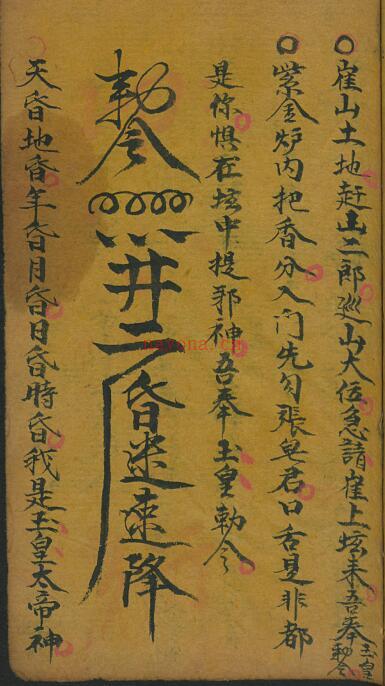 崔山土地赶山二郎巡山大伯急請崔上坛来吾奉玉皇勅令
紫金炉内把香分入门先勾張皂君口舌是非都
是你惧在坛中提邪神吾奉玉皇勅令
勅令 井 昏迷速降
天昏地昏年昏月昏日昏時昏我是玉皇太帝神